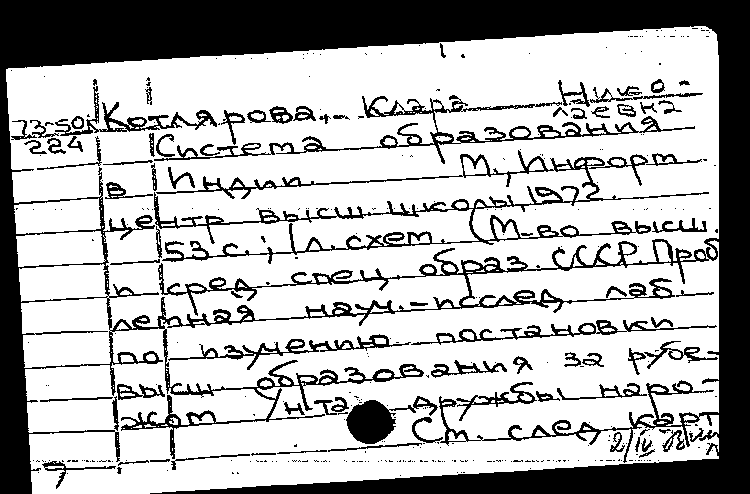 1.
Котлярова, Клара Нико-
лаевна
73-50к
224 Система образования
в Индии. М., Информ.
центр высш. школы, 1972.
53 с.; 1 л. схем. (М-во высш.
и сред. спец. образ. СССР. Проб
лемная науч.-исслед. лаб.
по изучению постановки
высш. образования за рубе-
жом /н-та дружбы наро-
См. след. карт
2/IV
7